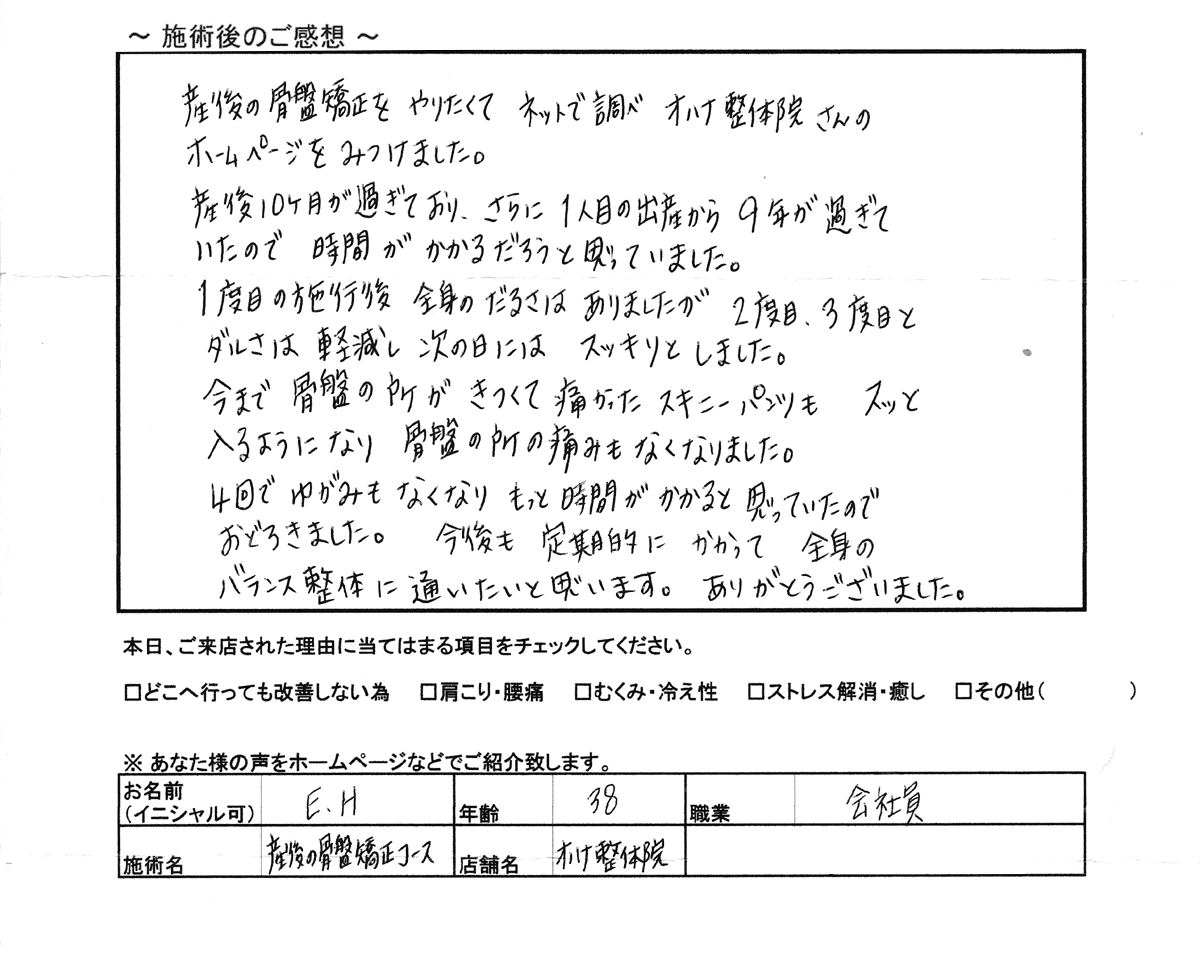 ～ 施術後のご感想 ～
産後の骨盤矯正を やりたくて ネットで調べ オハナ整体院さんの
ホームページを みつけました。
産後10ケ月が過ぎており、さらに 1人目の出産から 9年が過ぎて
いたので 時間が かかるだろうと思っていました。
1度目の施行後 全身のだるさは ありましたが 2度目、3度目と
ダルさは 軽減し 次の日には スッキリとしました。
今まで 骨盤の所が きつくて 痛かった スキニーパンツも スッと
入るようになり 骨盤の所の痛みも なくなりました。
4回で ゆがみも なくなり もっと時間が かかると思っていたので
おどろきました。 今後も 定期的に かかって 全身の
バランス整体に 通いたいと思います。 ありがとうございました。
本日、ご来店された理由に当てはまる項目をチェックしてください。
□どこへ行っても改善しない為 □肩こり・腰痛 □むくみ・冷え性 □ストレス解消・癒し □その他( )
※ あなた様の声をホームページなどでご紹介致します。
お名前
(イニシャル可) E.H 年齢 38 職業 会社員
施術名 産後の骨盤矯正コース 店舗名 オハナ整体院